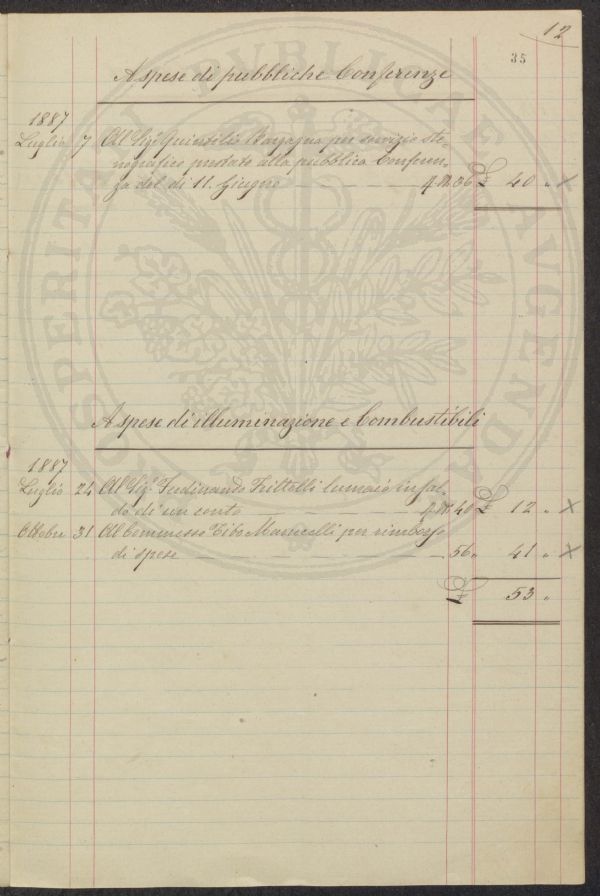 12
35
A spese di pubbliche Conferenze
1887
Luglio 7 Al Sig. Quintilio Bargagna per servizio ste-
nografico prestato alla pubblica Conferen-
za del dì 11. Giugno 36 £ 40 „ ×
A spese di illuminazione e Combustibili
1887
Luglio 24 Al Sig. Ferdinando lumaio in sal-
do di un conto 40 £ 12 „ ×
Ottobre 31 Al Commesso Tito Marucelli per rimborso
di spese 56 „ 41 „ ×
£ 53 „
PROSPERITATI PVBLICAE AVGENDAE